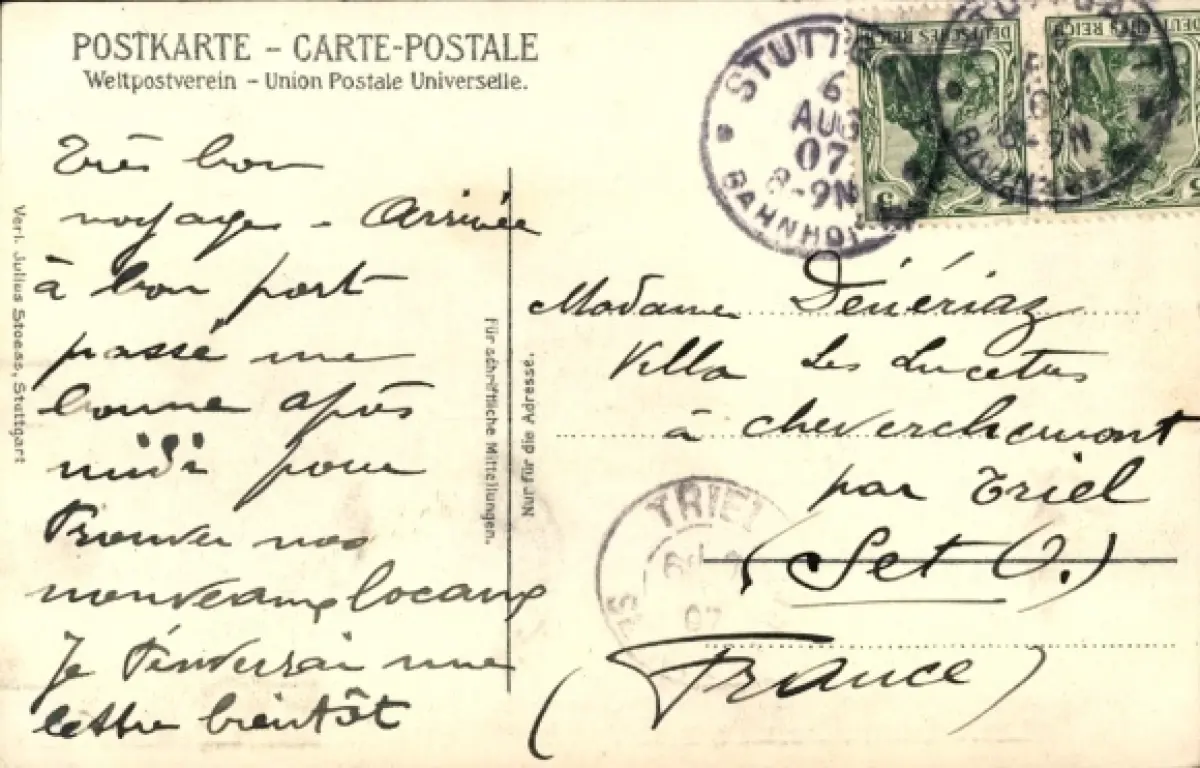 POSTKARTE – CARTE-POSTALE
Weltpostverein – Union Postale Universelle.
STUTTG
6
AUG
07
8-9N
BAHNHOF
DEUTSCHES REICH
5
DEUTSCHES REICH
5
8-9N
Très bon
voyage - Arrivée
à bon port
passé une
bonne après
midi pour
trouver nos
nouveaux locaux
Je t'enverrai une
lettre bientôt
Verl. Julius Stoess, Stuttgart
Für schriftliche Mitteilungen.
Nur für die Adresse.
Madame Dénériaz
Villa Les Lucettes
à cheverchemont
par Triel
(Set O.)
(France)
TRIEL
07